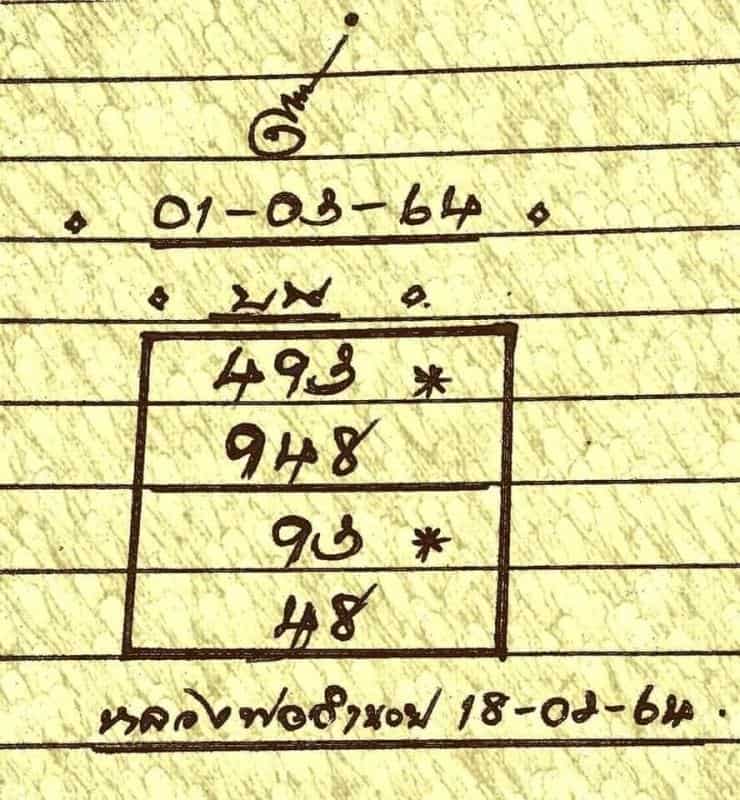 01-03-64
บน
493 *
948
93 *
48
หลวงพ่ออำนวย 18-02-64.